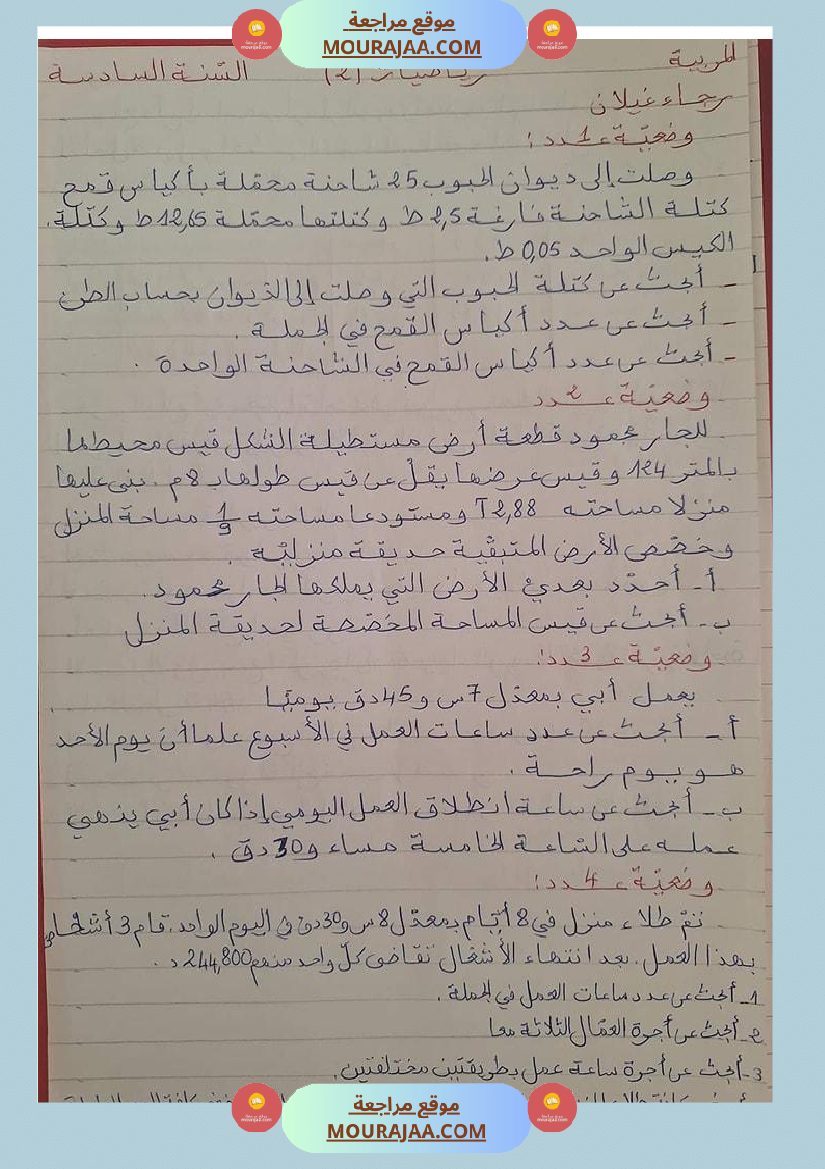 موقع مراجعة
MOURAJAA.COM
المربية رياضيات (2) السّنة السادسة
رجاء غيلان
وضعيّة عـ1ـدد:
وصلت إلى ديوان الحبوب 25 شاحنة محمّلة بأكياس قمح
كتلة الشّاحنة فارغة 2,5 ط وكتلتها محمّلة 12,65 ط وكتلة
الكيس الواحد 0,05 ط.
- أبحث عن كتلة الحبوب التي وصلت إلى الدّيوان بحساب الطن
- أبحث عن عدد أكياس القمح في الجملة.
- أبحث عن عدد أكياس القمح في الشاحنة الواحدة.
وضعيّة عـ2ـدد
للجار محمود قطعة أرض مستطيلة الشكل قيس محيطها
بالمتر 124 وقيس عرضها يقلّ عن قيس طولها بـ 8م. بنى عليها
منزلا مساحته 2,88 آ ومستودعا مساحته 1/9 مساحة المنزل
وخصّص الأرض المتبقّية حديقة منزليّة.
أ- أحدّد بعديْ الأرض التي يملكها الجار محمود.
ب- أبحث عن قيس المساحة المخصّصة لحديقة المنزل
وضعيّة عـ3ـدد:
يعمل أبي بمعدّل 7س و45دق يوميّا
أ- أبحث عن عدد ساعات العمل في الأسبوع علما أن يوم الأحد
هو يوم راحة.
ب- أبحث عن ساعة انطلاق العمل اليومي إذا كان أبي ينهي
عمله على السّاعة الخامسة مساء و30دق.
وضعيّة عـ4ـدد:
تمّ طلاء منزل في 8 أيّام بمعدّل 8س و30دق في اليوم الواحد. قام 3 أشخاص
بهذا العمل. بعد انتهاء الأشغال تقاضى كلّ واحد منهم 244,800د.
1- أبحث عن عدد ساعات العمل في الجملة.
2- أبحث عن أجرة العمّال الثلاثة معا
3- أبحث عن أجرة ساعة عمل بطريقتين مختلفتين.
موقع مراجعة
MOURAJAA.COM